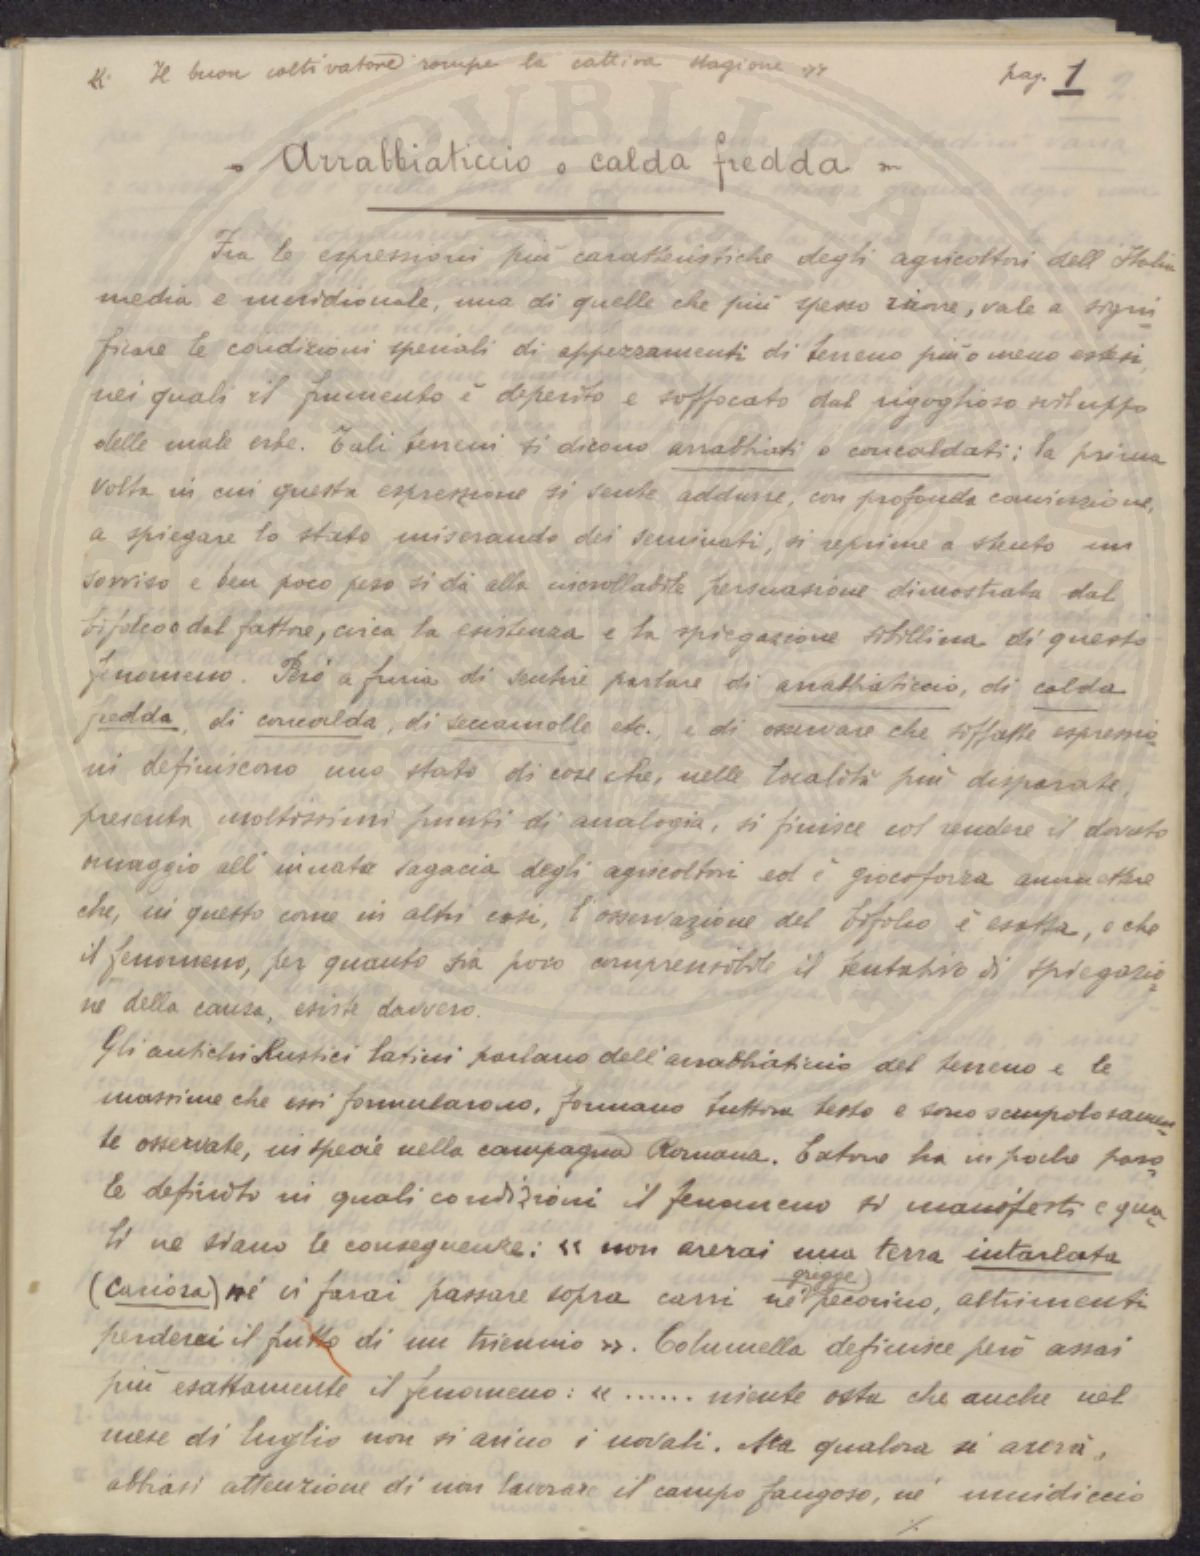 « Il buon coltivatore rompe la cattiva stagione »
pag. 1 2.
Arrabbiaticcio o calda fredda
Fra le espressioni più caratteristiche degli agricoltori dell'Italia
media e meridionale, una di quelle che più spesso ricorre, vale a signi-
ficare le condizioni speciali di appezzamenti di terreno più o meno estesi,
nei quali il frumento è deperito e soffocato dal rigoglioso sviluppo
delle male erbe. Tali terreni si dicono arrabbiati o concaldati; la prima
volta in cui questa espressione si sente addurre, con profonda convinzione,
a spiegare lo stato miserando dei seminati, si reprime a stento un
sorriso e ben poco peso si dà alla incrollabile persuasione dimostrata dal
bifolco o dal fattore, circa la esistenza e la spiegazione sibillina di questo
fenomeno. Però a furia di sentire parlare di arrabbiaticcio, di calda
fredda, di concalda, di seccamolle etc., e di osservare che siffatte espressio-
ni definiscono uno stato di cose che, nelle località più disparate,
presenta moltissimi punti di analogia, si finisce col rendere il dovuto
omaggio all'innata sagacia degli agricoltori ed è giocoforza ammettere
che, in questo come in altri casi, l'osservazione del bifolco è esatta, e che
il fenomeno, per quanto sia poco comprensibile il tentativo di spiegazio-
ne della causa, esiste davvero.
Gli antichi Rustici latini parlano dell'arrabbiaticcio del terreno e le
massime che essi formularono, formano tuttora testo e sono scrupolosamen-
te osservate, in specie nella campagna Romana. Catone ha in poche paro-
le definito in quali condizioni il fenomeno si manifesti e qua-
li ne siano le conseguenze: « non arerai una terra intarlata
(cariosa) né vi farai passare sopra carri né gregge pecorino, altrimenti
perderai il frutto di un triennio ». Columella definisce però assai
più esattamente il fenomeno: « ...... niente osta che anche nel
mese di luglio non si arino i novali. Ma qualora si arerà,
abbiasi attenzione di non lavorare il campo fangoso, né umidiccio
./.